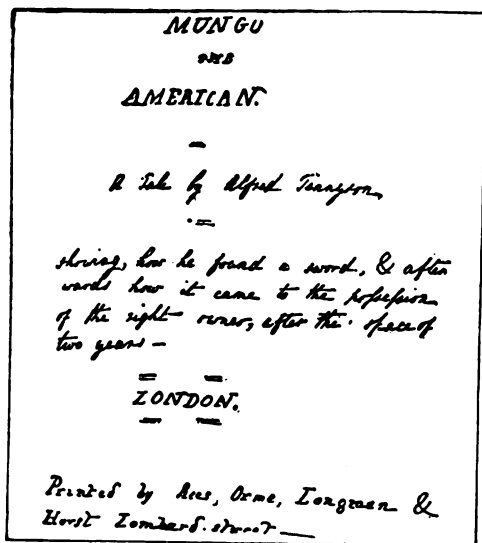 MUNGO
THE
AMERICAN.
A Tale by Alfred Tennyson,
showing, how he found a sword, & after
wards how it came to the possession
of the right owner, after the space of
two years —
LONDON.
Printed by Rees, Orme, Longman &
Hurst Lombard-street —